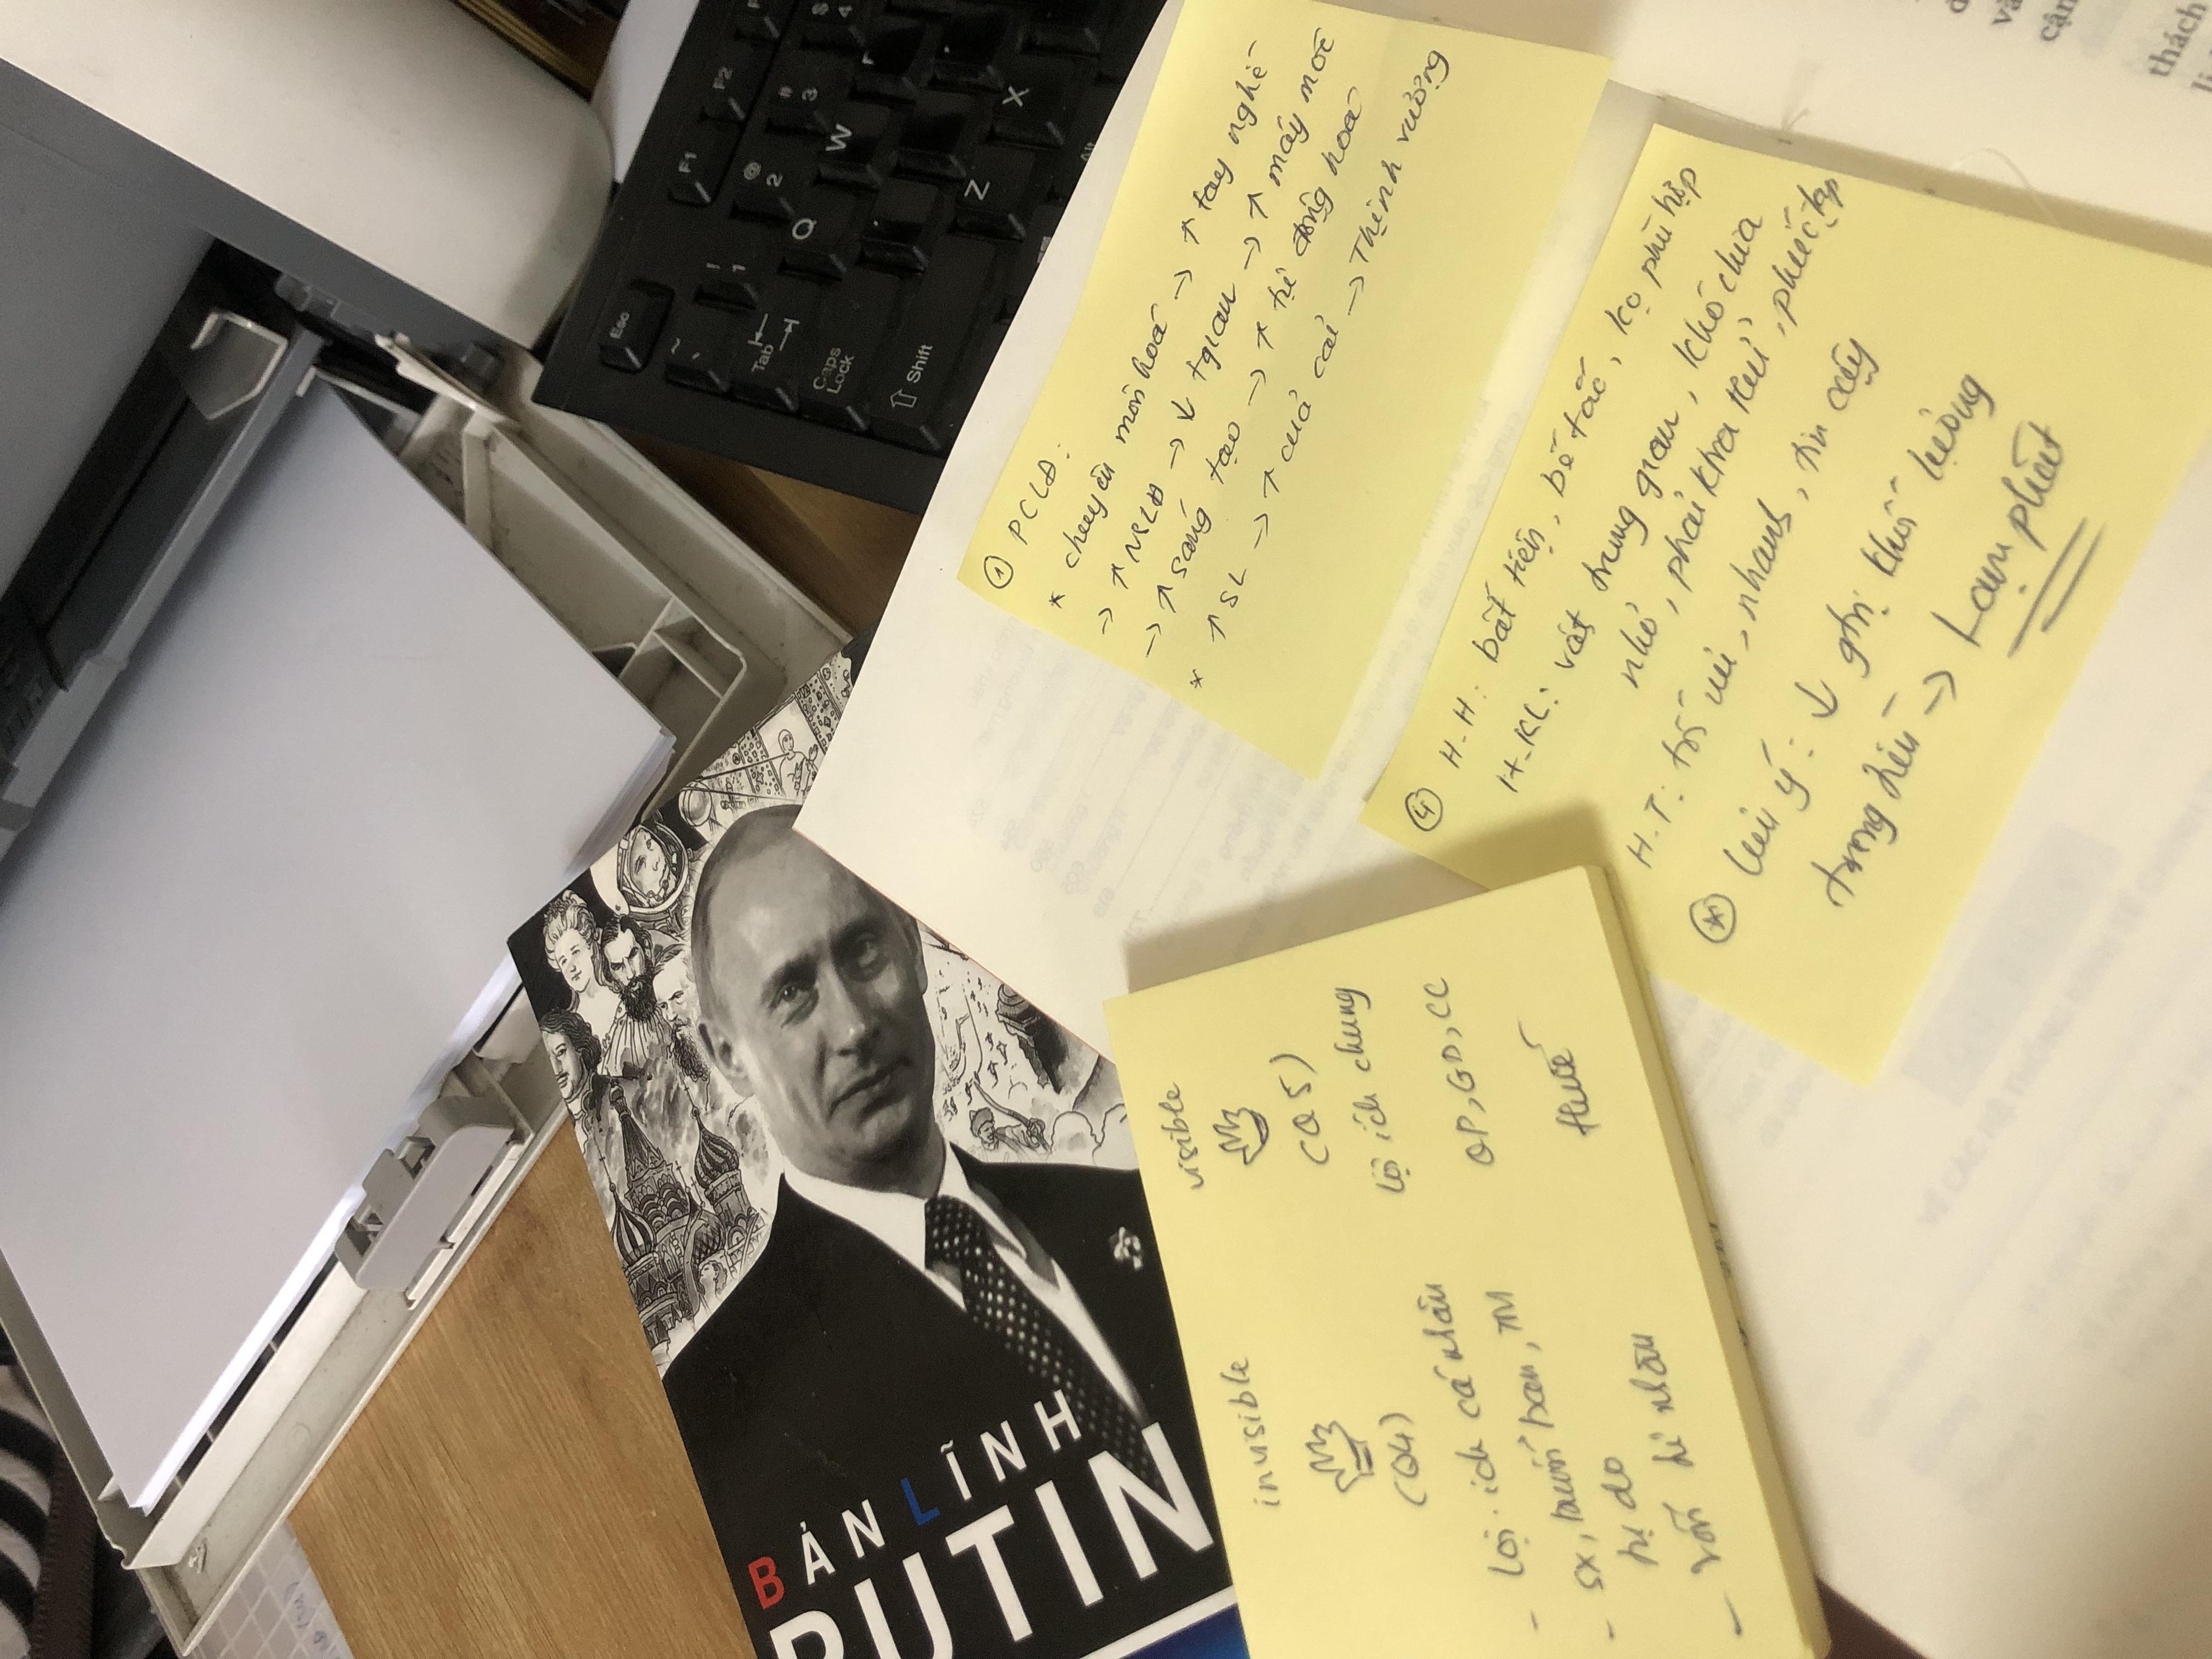 ① PCLĐ:
* chuyên môn hoá → ↑ tay nghề
→ ↑ NSLĐ → ↓ tgian → ↑ máy móc
→ ↑ sáng tạo → ↑ tự động hoá
* ↑ SL → ↑ của cải → Thịnh vượng
④ H-H: bất tiện, bế tắc, ko phù hợp
H-KL: vật trung gian, khó chia
nhỏ, phải khai thác, phức tạp
H-T: tối ưu, nhanh, tin cậy
* lưu ý: ↓ ghị khối lượng
trong tiền → Lạm phát
visible
(Q5)
lợi ích chung
QP, GD, CC
thuế
invisible
(Q4)
- lợi ích cá nhân
- sx, buôn bán, TM
tự do
- vốn tư nhân
BẢN LĨNH
PUTIN
Esc
F1
F2
! 1
@ 2
# 3
$ 4
~ `
Tab
Q
W
Caps Lock
Shift
Z
X
Alt
thách